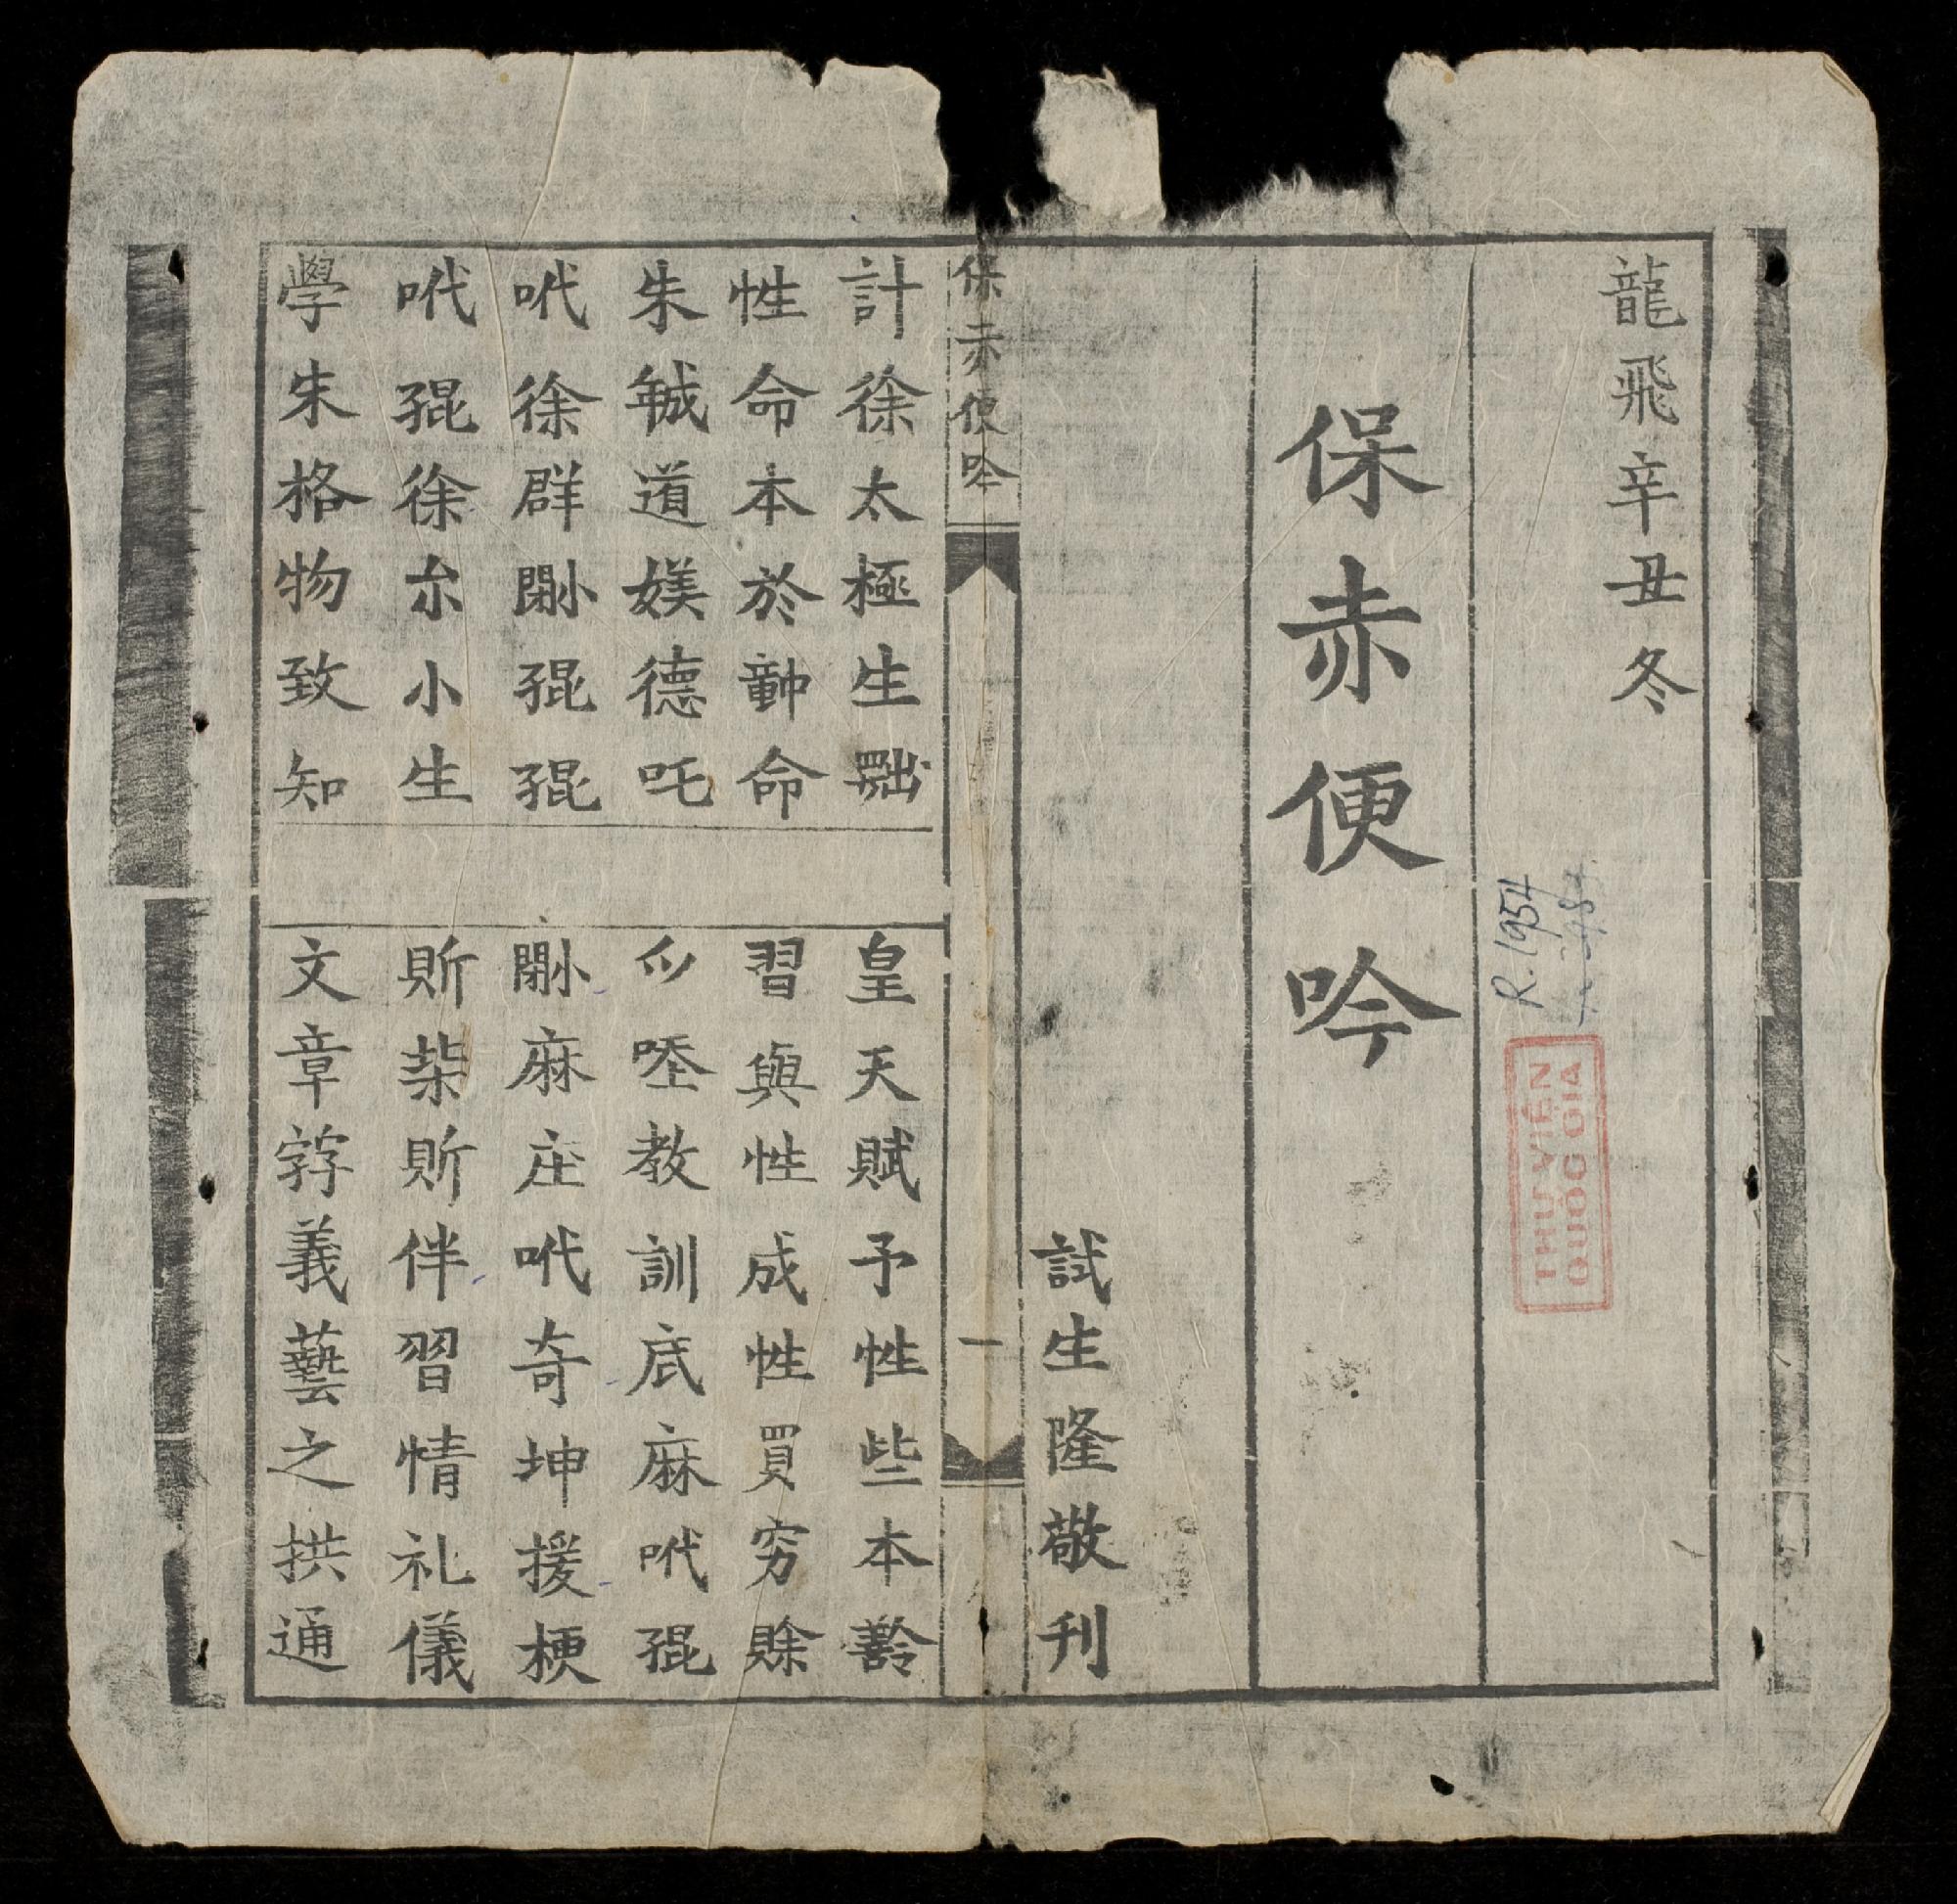 龍飛辛丑冬
R.1954
THƯ VIỆN
QUỐC GIA
保赤便吟
試生隆敬刊
保赤便吟
一
計徐太極生𦋦
皇天賦予性些本𫅜
性命本於命
習與性成性買穷賒
朱𢧚道媄德吒
教訓底麻𠰺𡥵
𠰺徐群𡮣𡥵𡥵
𡮣麻庒𠰺奇坤援梗
𠰺𡥵徐小生
𧵆柴𧵆伴習情礼儀
學朱格物致知
文章𡨸義藝之拱通